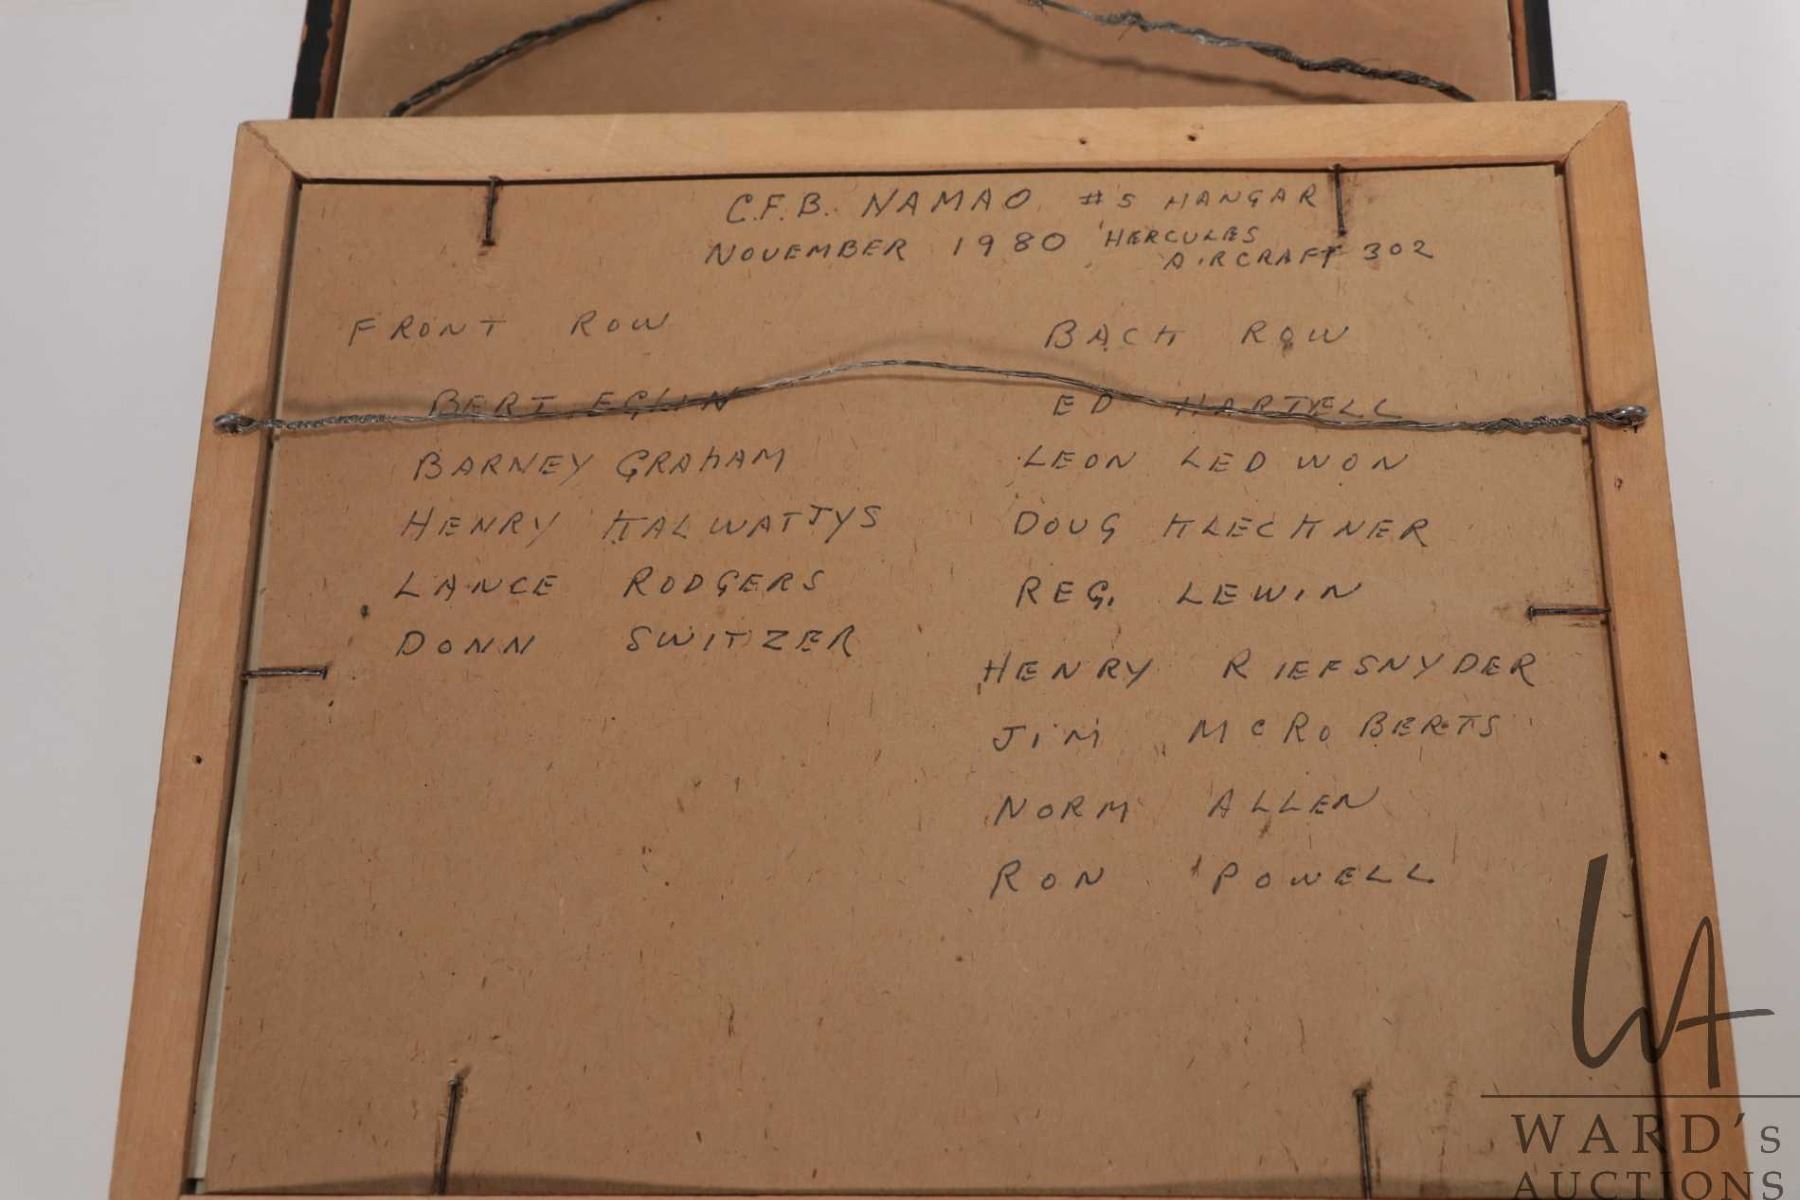 C.F.B. NAMAO #5 HANGAR
NOVEMBER 1980 'HERCULES
AIRCRAFT 302
FRONT ROW
BERT EGLIN
BARNEY GRAHAM
HENRY KALWATJYS
LANCE RODGERS
DONN SWITZER
BACK ROW
ED HARTELL
LEON LEDWON
DOUG KLECKNER
REG. LEWIN
HENRY RIEFSNYDER
JIM McROBERTS
NORM ALLEN
RON POWELL
WA
WARD's
AUCTIONS